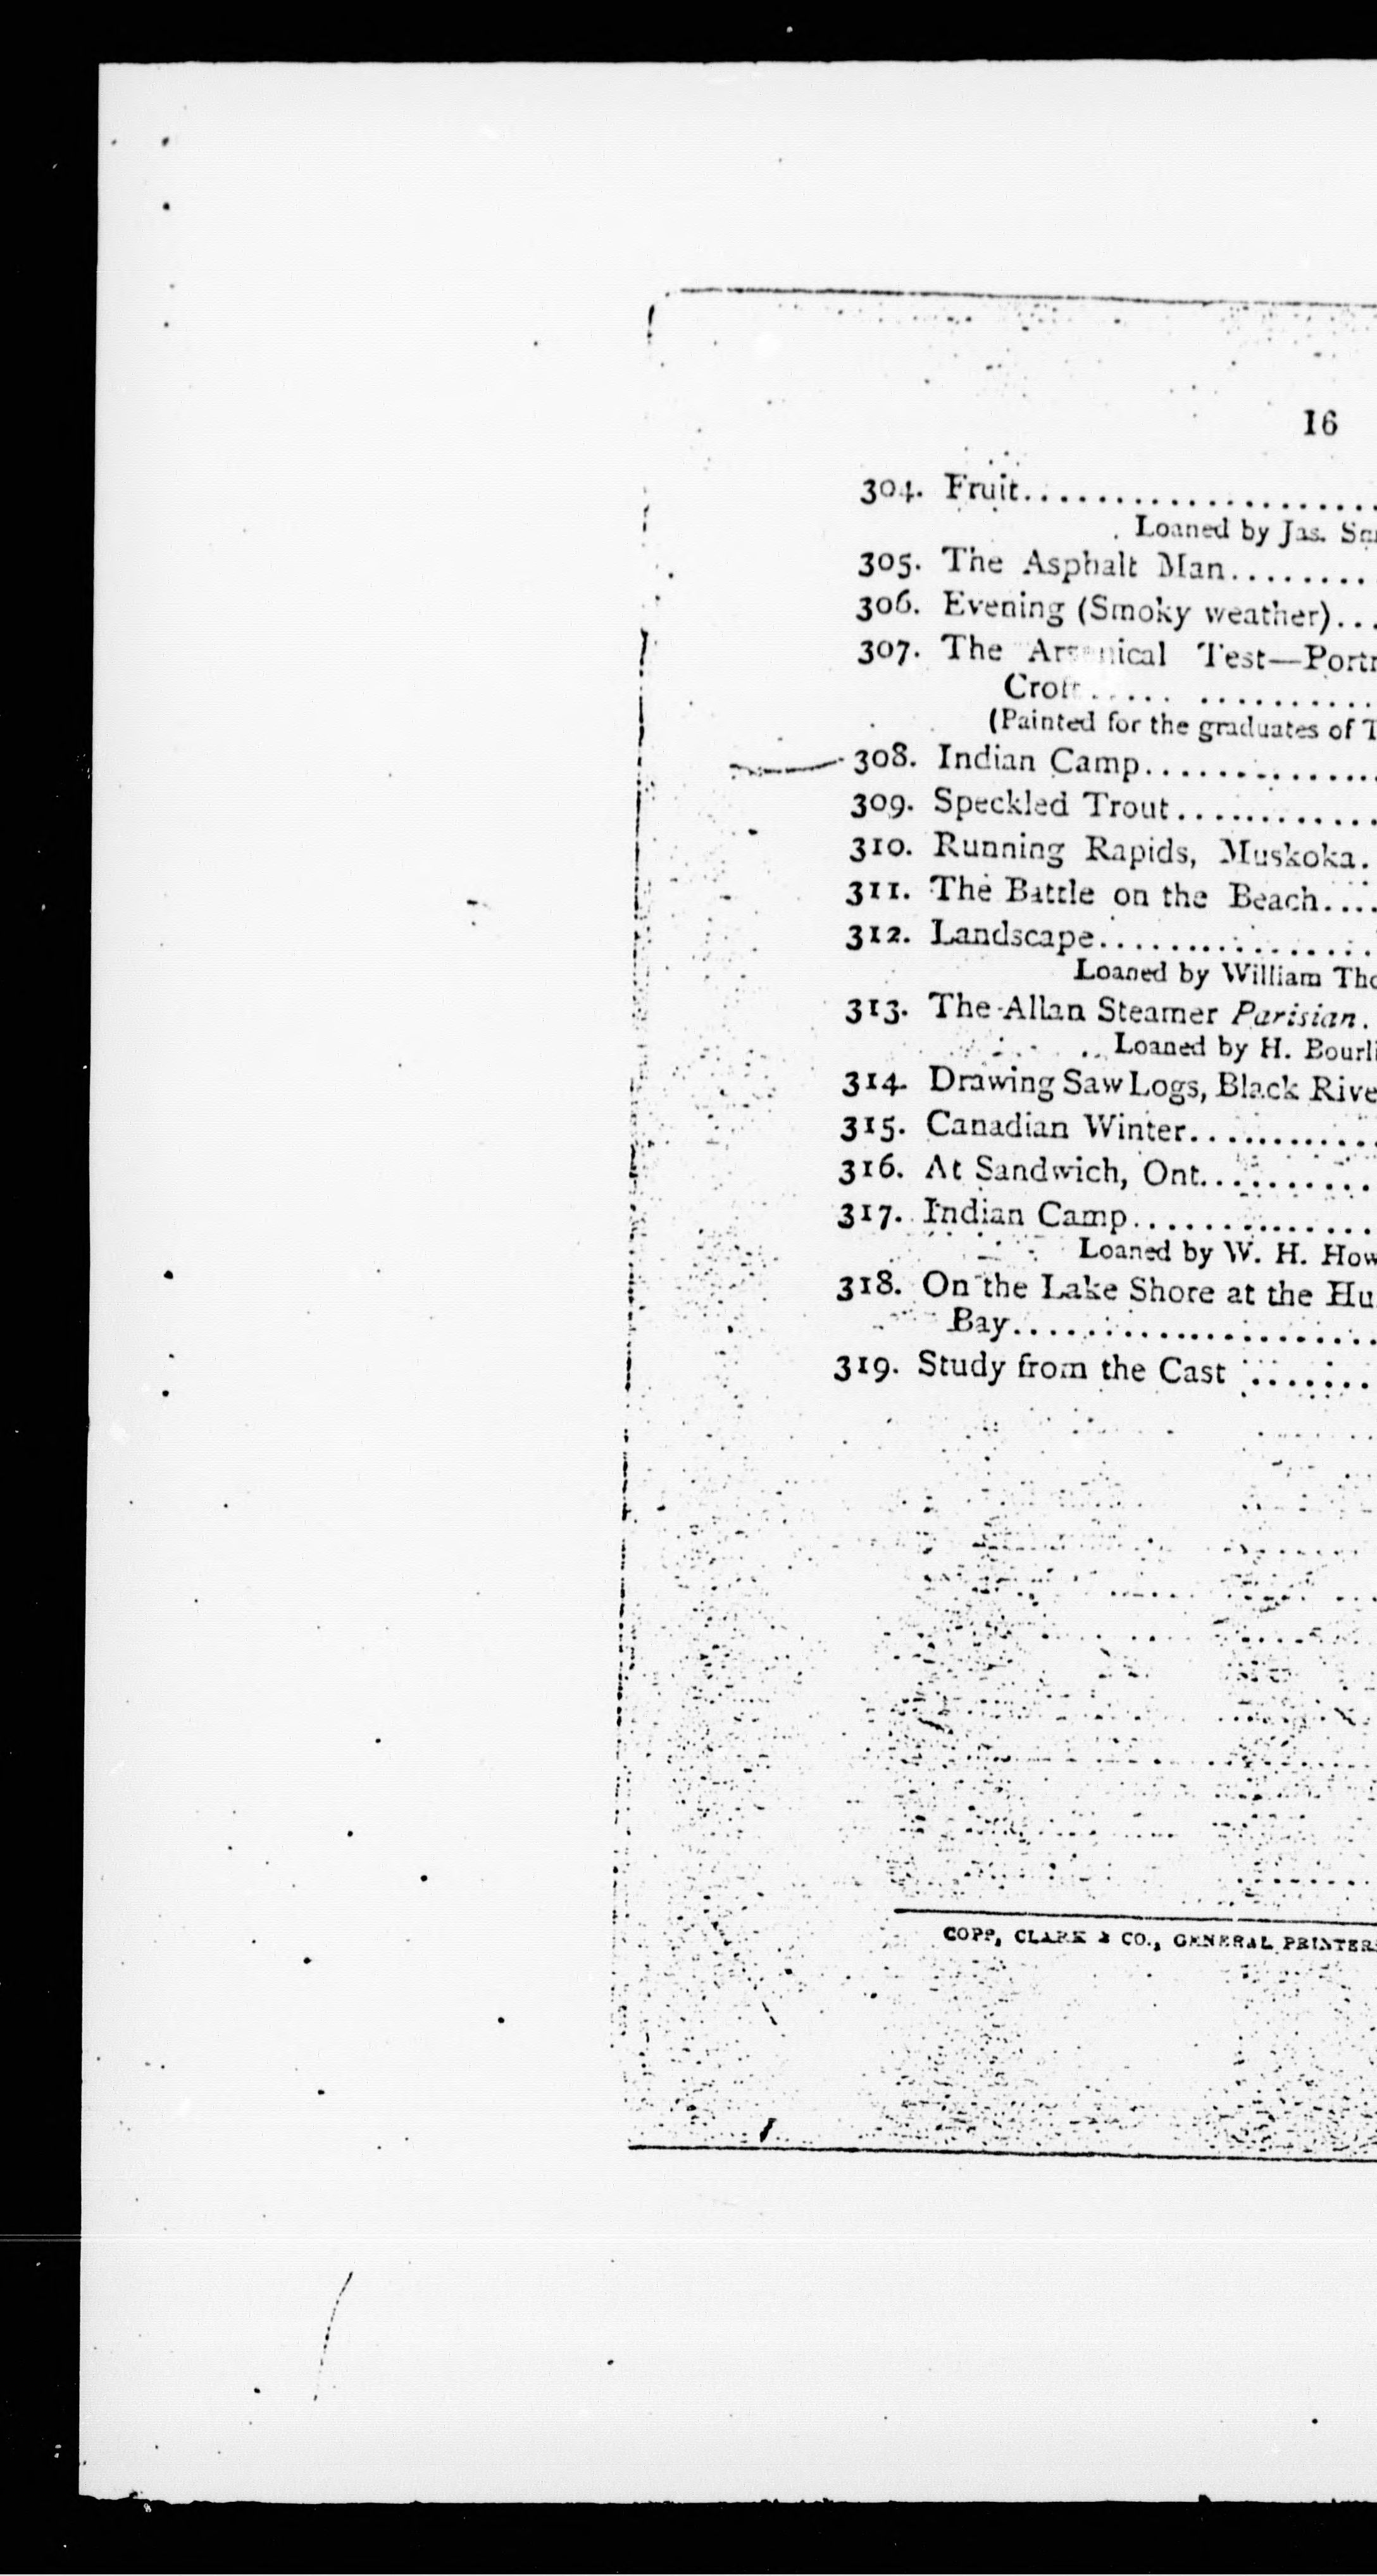 16
304. Fruit......................
Loaned by Jas.
305. The Asphalt Man.........
306. Evening (Smoky weather)...
307. The Test—Portr
Croft..... ............
(Painted for the graduates of T
308. Indian Camp................
309. Speckled Trout.............
310. Running Rapids, Muskoka.
311. The Battle on the Beach....
312. Landscape..................
Loaned by William Tho
313. The Allan Steamer Parisian.
Loaned by H. Bourli
314. Drawing Saw Logs, Black Rive
315. Canadian Winter.............
316. At Sandwich, Ont...........
317. Indian Camp................
Loaned by W. H. How
318. On the Lake Shore at the Hu
Bay.........................
319. Study from the Cast .......
COPP, CLARK & CO., GENERAL PRINTERS